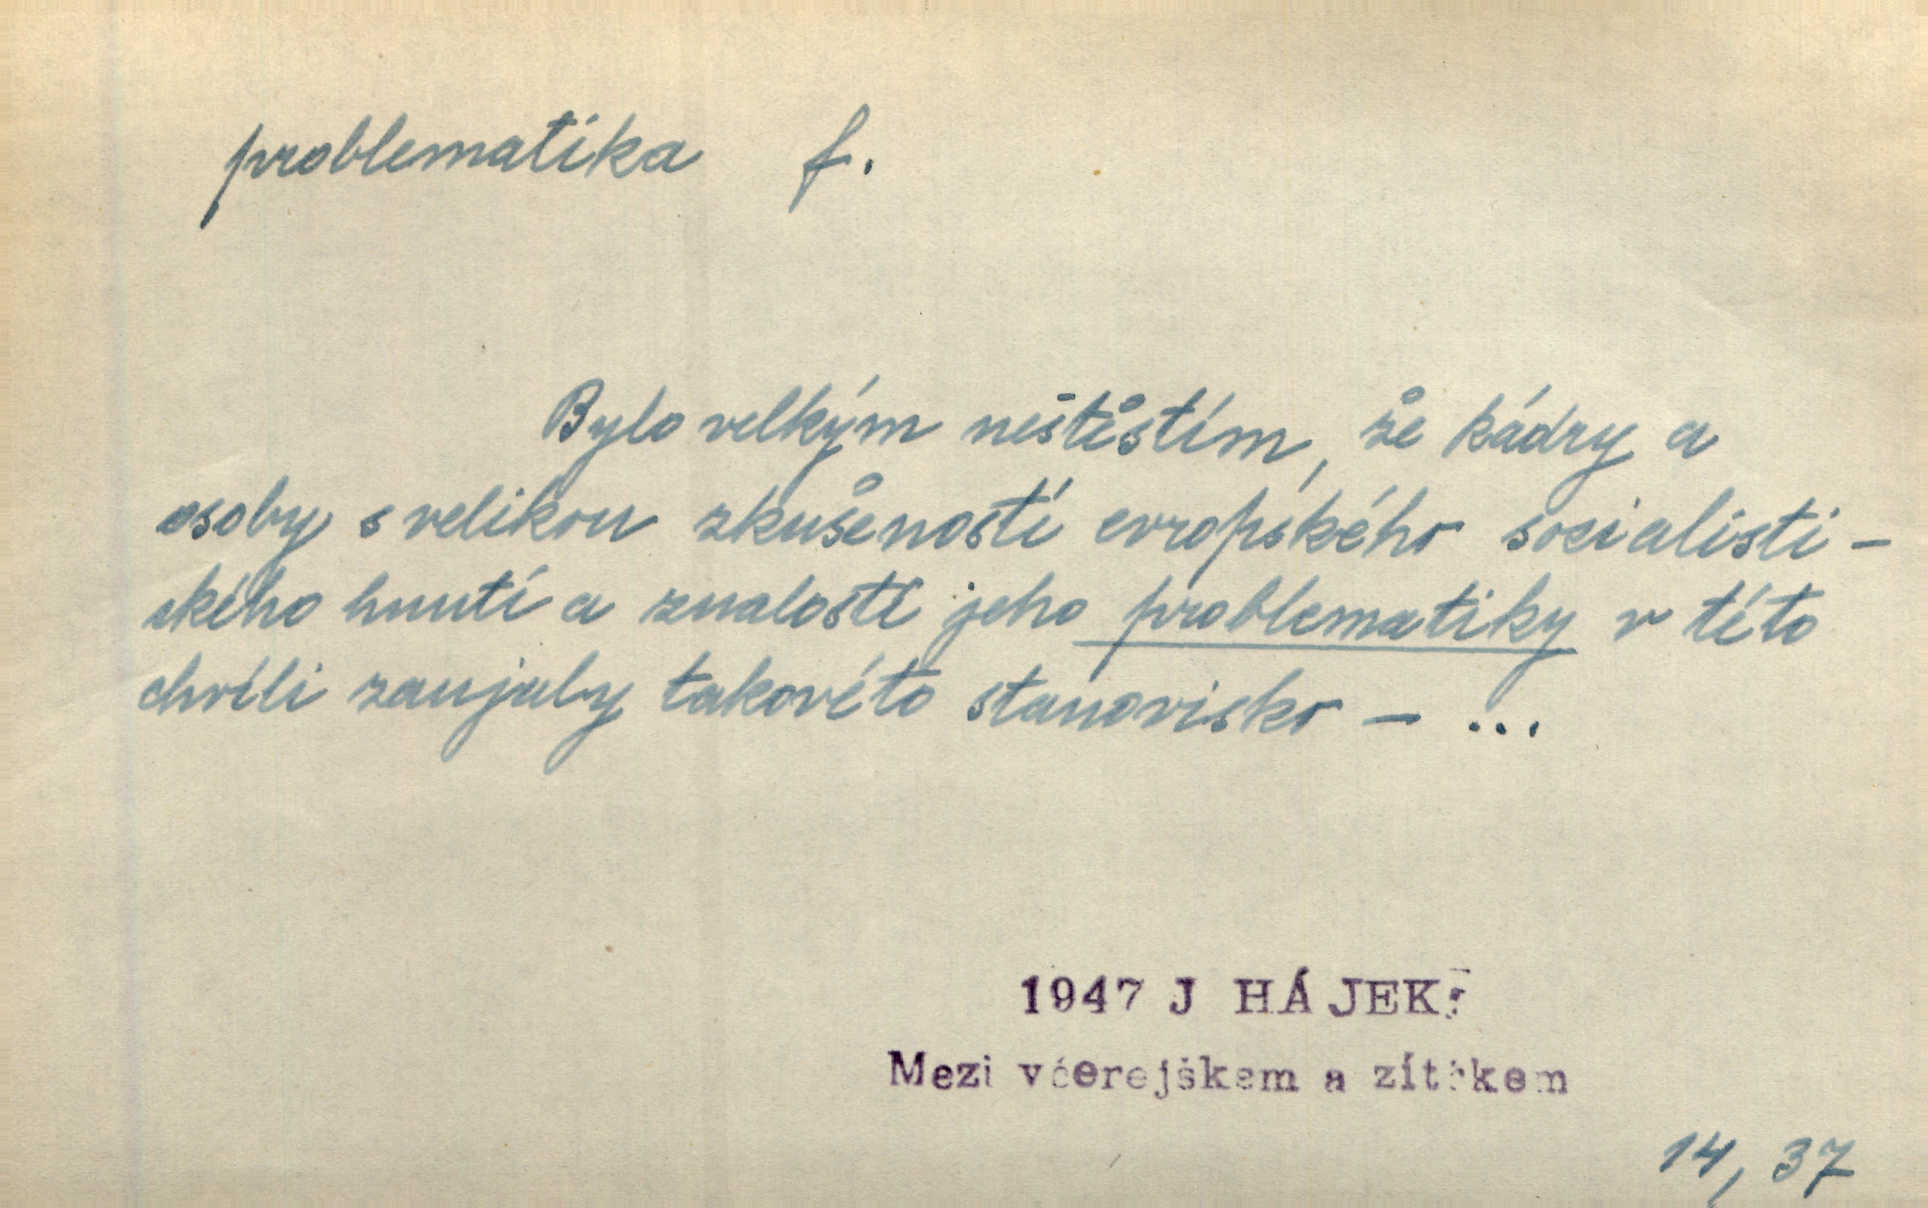 problematika f.
Bylo velkým neštěstím, že kádry a
osoby s velikou zkušeností evropského socialisti-
ckého hnutí a znalostí jeho problematiky v této
chvíli zaujaly takovéto stanovisko - ...
1947 J HÁJEK:
Mezi včerejškem a zítřkem
14, 37